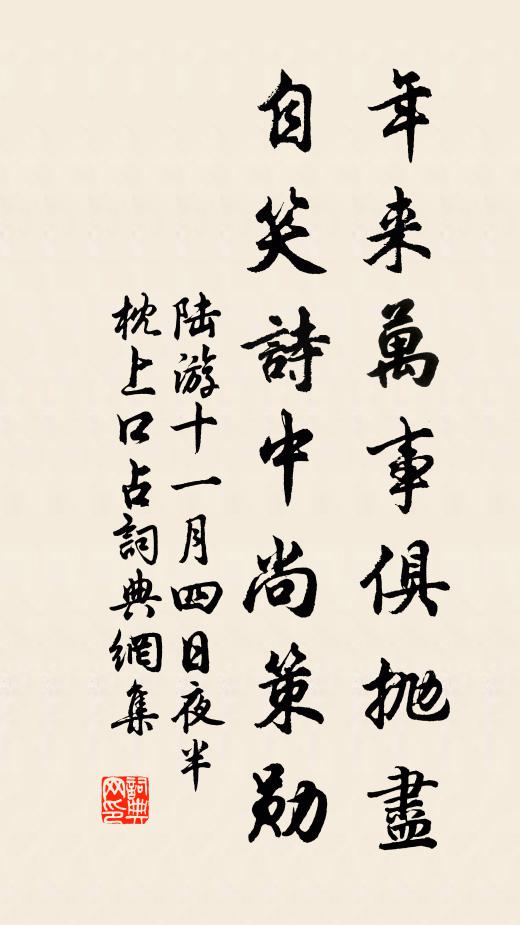 年来萬事俱抛盡
自笑詩中尚策勛
陆游十一月四日夜半
枕上口占詞典網集
詞典
网印